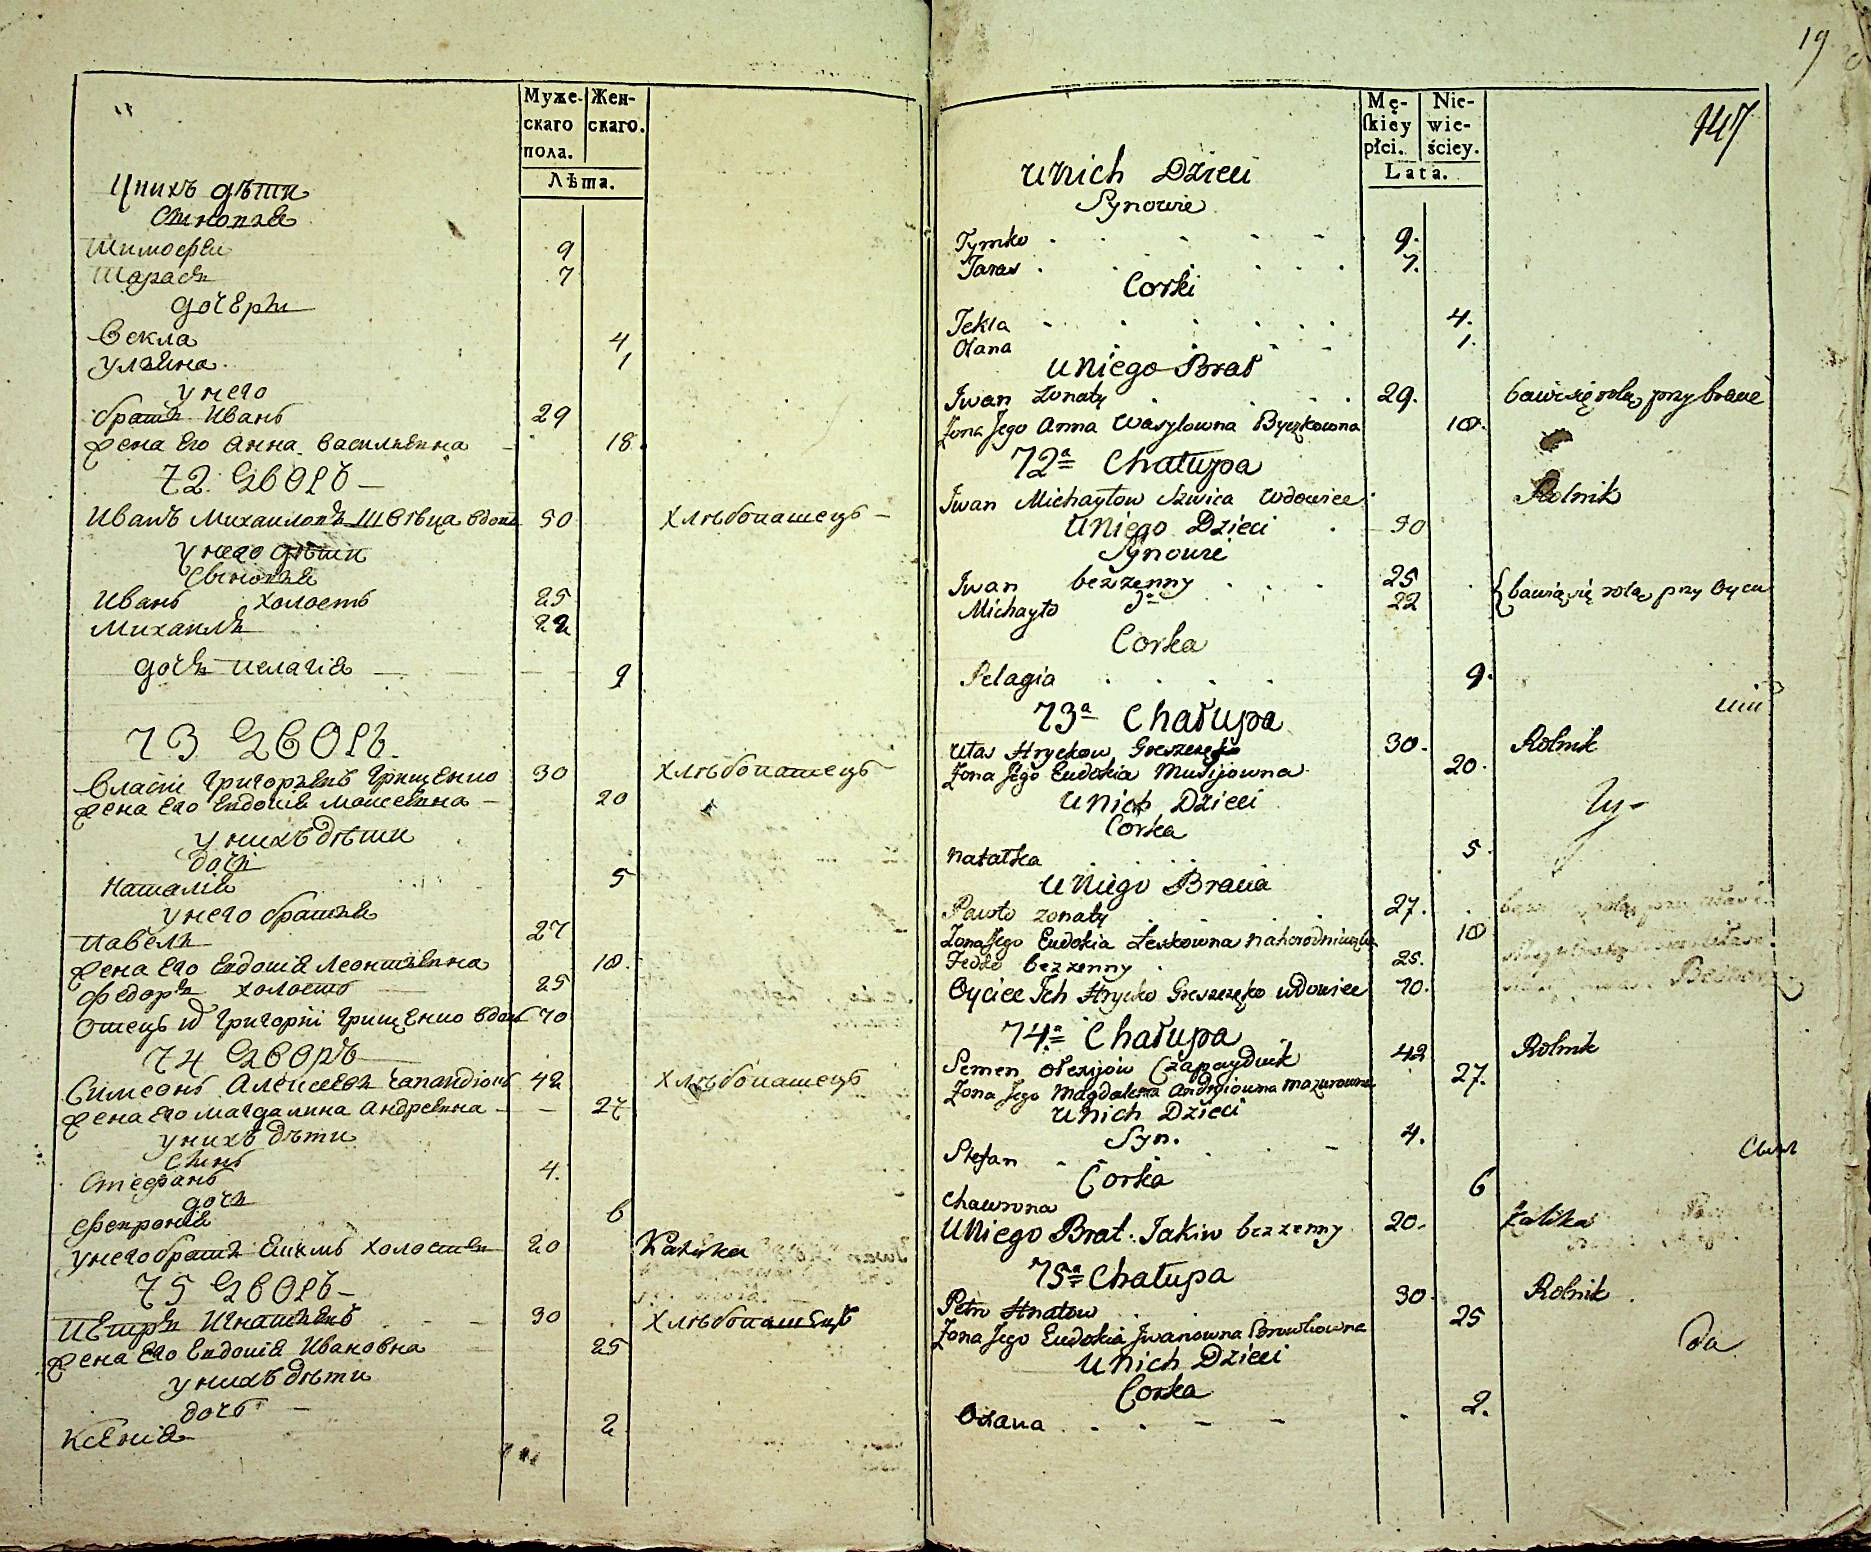 Муже-
скаго
пола.
Жен-
скаго.
Лѣта.
У нихъ дѣти
Сыновья
Тимофей 9
Тарасъ 7
дочери
Векла 4
Ульяна 1
у него
братъ Иванъ 29
жена Его Анна Васильевна 18.
72. Дворъ
Иванъ Михаиловъ Швѣца вдовъ 50 Хлѣбопашецъ
у него дѣти
Сыновья
Иванъ холостъ 25
Михаилъ 22
дочь Пелагія 9
73 Дворъ
Власій Григорьевъ Грищенко 30 Хлѣбопашецъ
жена Его Евдокія Моисеевна 20
у нихъ дѣти
дочь
Наталія 5
у него братья
Павелъ 27
жена Его Евдокія Леонтьевна 18.
Федоръ холостъ 25
Отецъ Григорій Грищенко вдовъ 70
74 Дворъ
Симеонъ Алексеевъ 42 Хлѣбопашецъ
жена Его Магдалина Андреевна 27
у нихъ дѣти
Сынъ
Стефанъ 4.
дочь
Февронія 6
у него братъ Якимъ холостъ 20 Калѣка
75 Дворъ
Петръ Игнатьевъ 30 Хлѣбопашецъ
жена Его Евдокія Ивановна 25
у нихъ дѣти
дочь
Ксенія 2
19
147
Mę-
skiey
płci.
Nie-
wie-
ściey.
Lata.
U nich Dzieci
Synowie
Tymko 9.
Taras 7.
Corki
Tekla 4.
Olana 1.
U niego Brat
Iwan zonaty 29. bawi się rolą przy bracie
Zona Jego Anna Wasylowna Byczkowna 18.
72a Chałupa
Iwan Michayłow Szwica wdowiec Rolnik
U niego Dzieci 50
Synowie
Iwan bezzenny 25
Michayło do 22 {bawią się rolą przy Oycu
Corka
Pelagia 9.
73a Chałupa
Ułas Hryckow 30. Rolnik
Zona Jego Eudokia Musijowna 20.
U nich Dzieci
Corka
Natałka 5.
U niego Bracia
Pawło zonaty 27.
Zona Jego Eudokia Leskowna 18
Fedko bezzenny 25.
Oyciec Ich Hrycko wdowiec 70.
74a Chałupa
Semen Ołexijow 42 Rolnik
Zona Jego Magdalena Andryiowna Mazurowna 27.
U nich Dzieci
Syn.
Stefan 4.
Corka
Chawrona 6
U niego Brat. Jakim bezzenny 20. Kalika
75a Chałupa
Petro Hnatow 30. Rolnik
Zona Jego Eudokia Iwanowna 25
U nich Dzieci
Corka
Oxana 2.